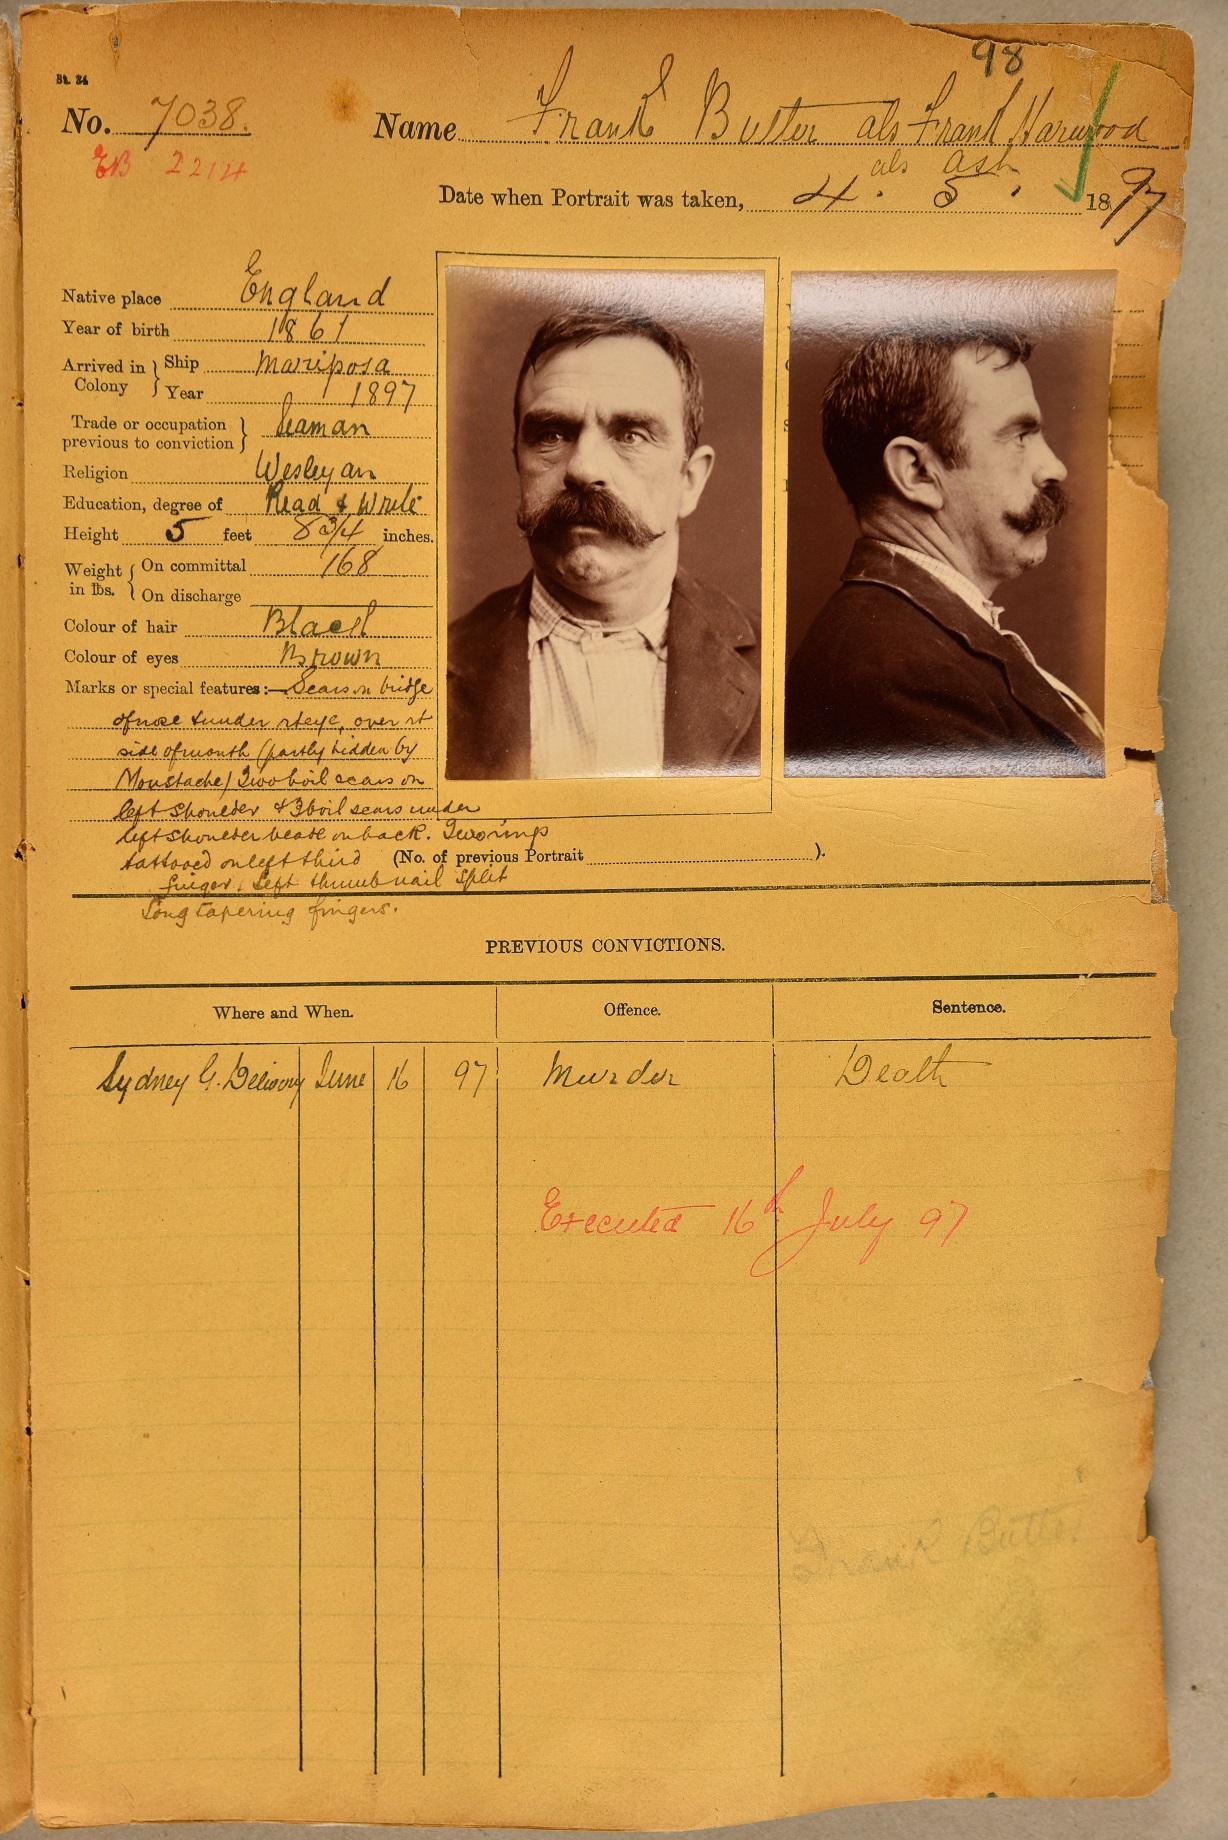 98
St. 24
No. 7038.
Name Frank Butter als Frank Harwood
als Ash
EB 2214
Date when Portrait was taken, 4. 5. 1897
Native place England
Year of birth 1861
Arrived in Colony } Ship Mariposa
Year 1897
Trade or occupation previous to conviction } Seaman
Religion Wesleyan
Education, degree of Read & Write
Height 5 feet 8 3/4 inches.
Weight in lbs. { On committal 168
On discharge
Colour of hair Black
Colour of eyes Brown
Marks or special features:— Scars on bridge
of nose & under rt eye, over rt
side of mouth (partly hidden by
Moustache) Two boil scars on
left shoulder & 3 boil scars under
left shoulder blade on back. Two rings
tattooed on left third
finger. Left thumb nail split
Long tapering fingers.
(No. of previous Portrait ).
PREVIOUS CONVICTIONS.
Where and When. Offence. Sentence.
Sydney G. Delivery June 16 97 Murder Death
Executed 16th July 97
Frank Butter